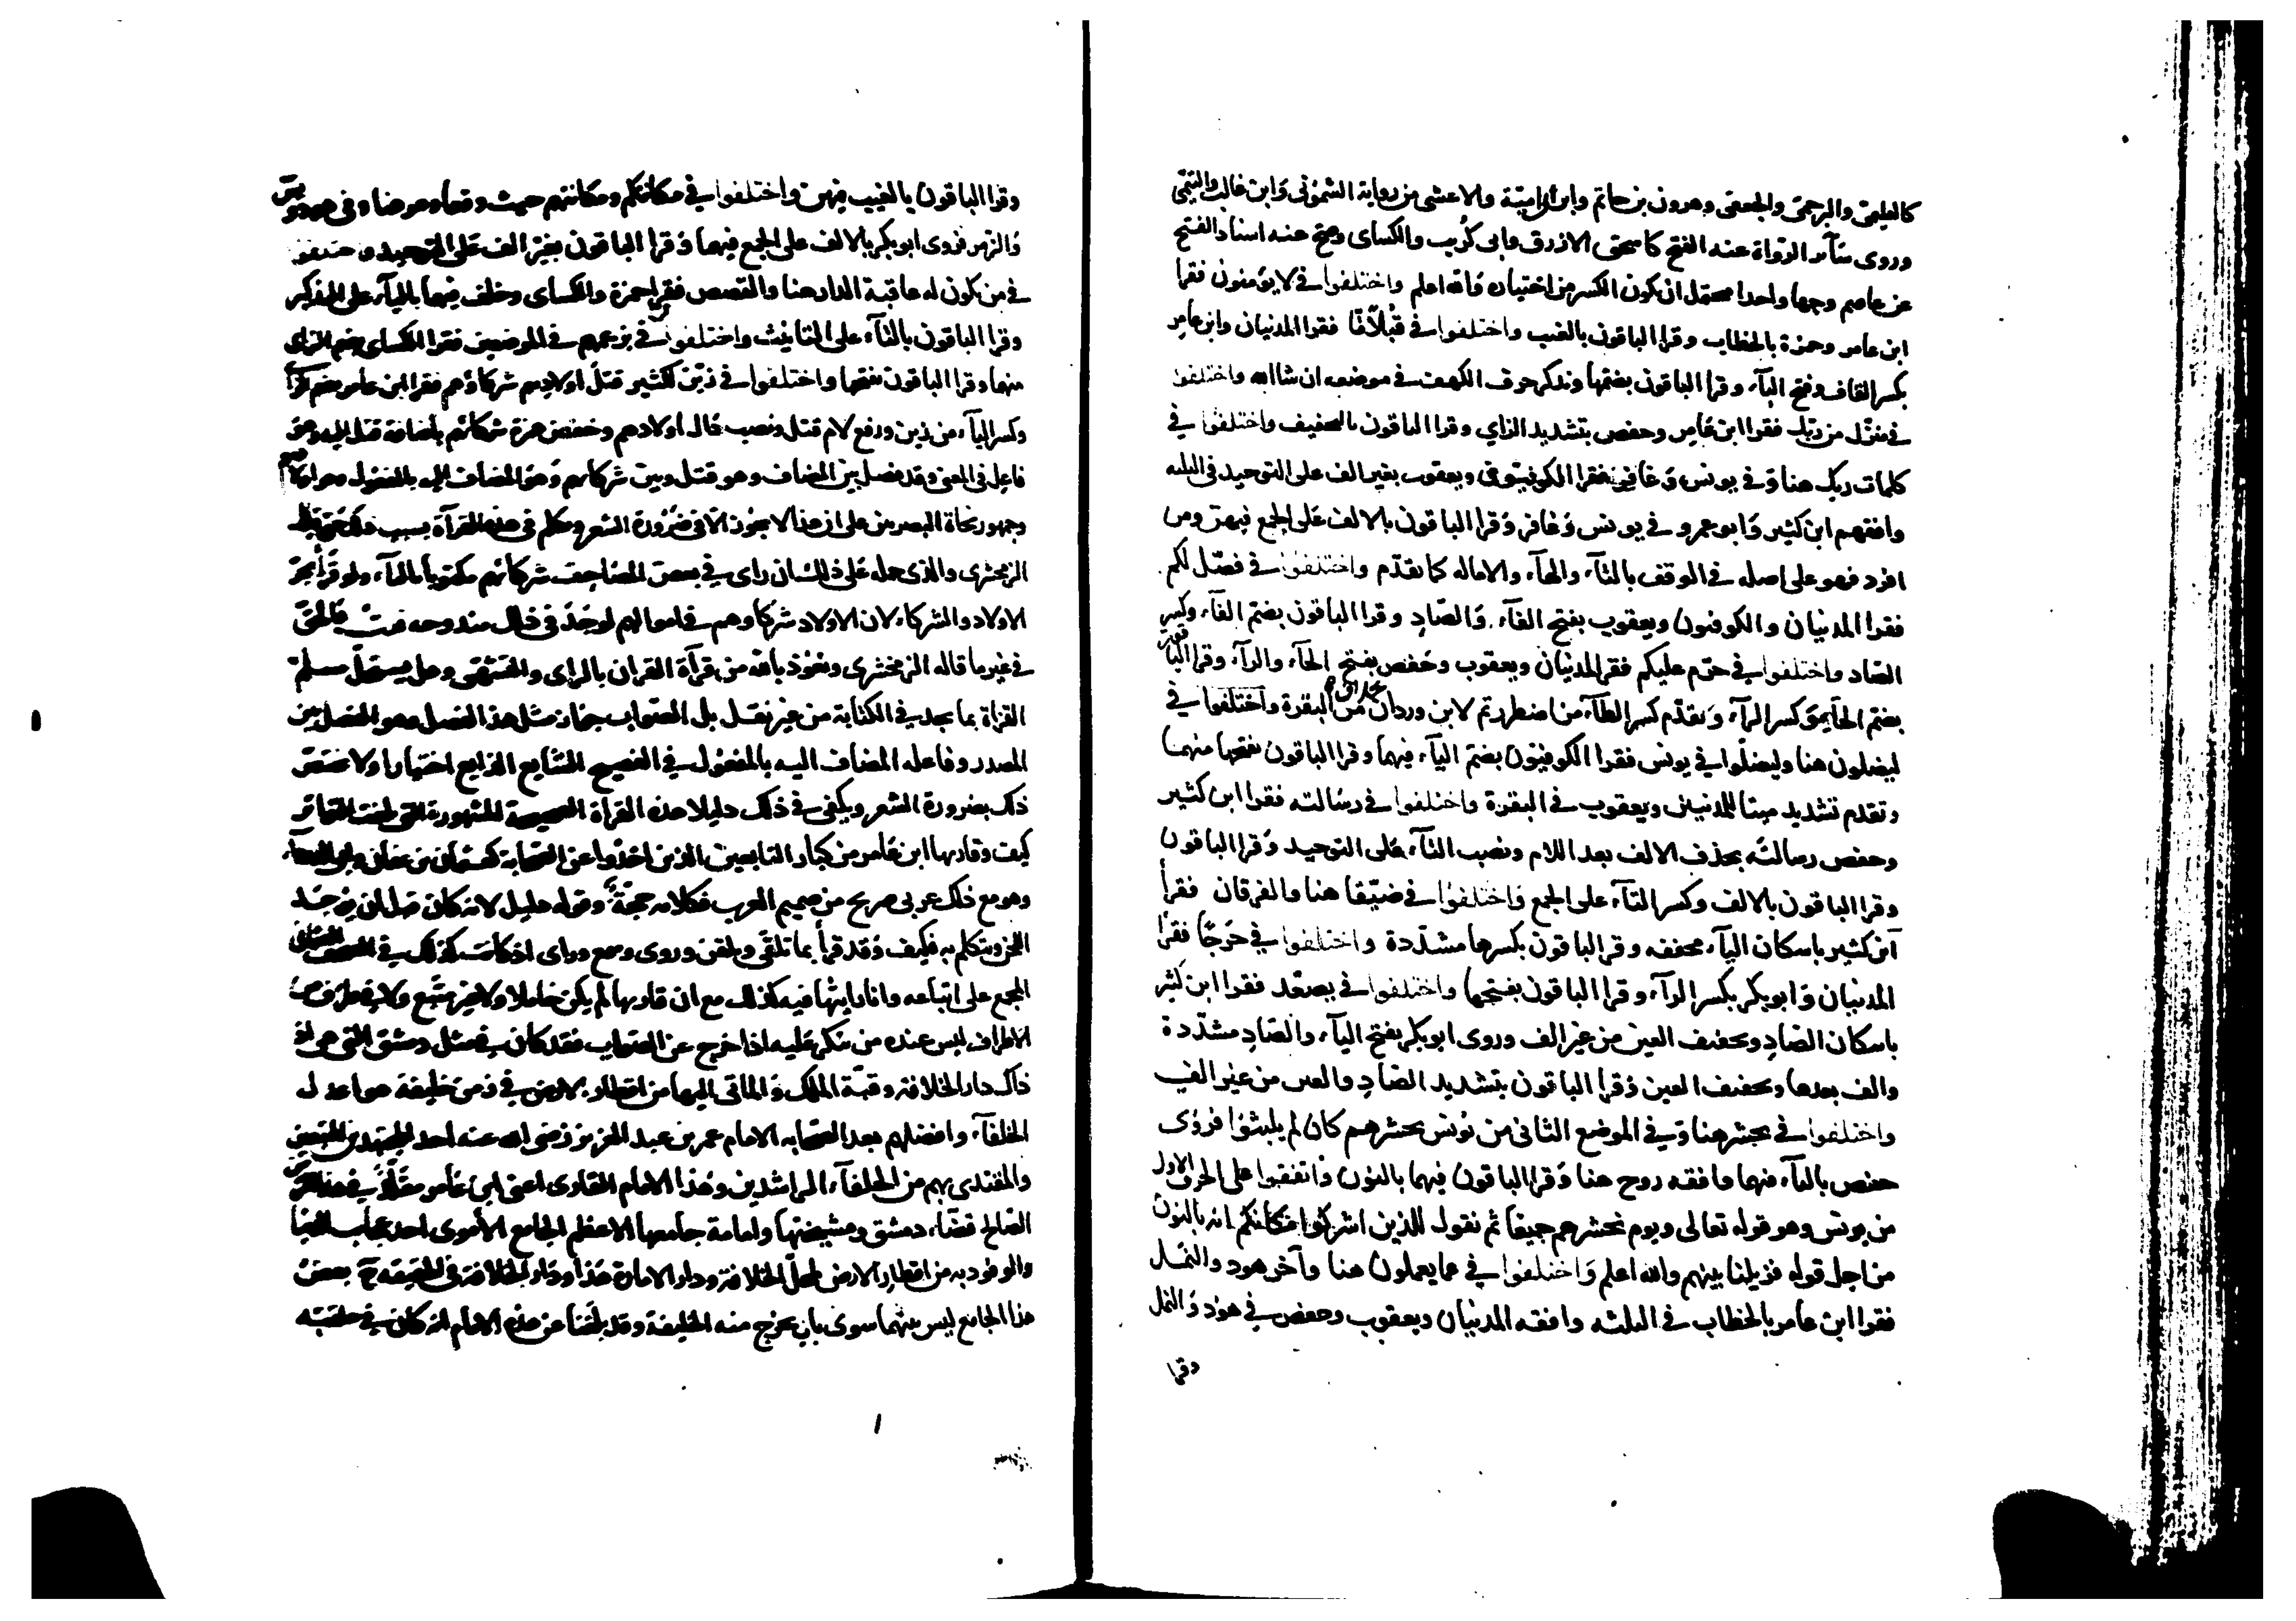 كالعليمى والبرجمى والجعفى وهرون بن حاتم وابن ابى امية والاعشى من رواية الشمونى وابن غالب والتيمى
وروى سآئر الرواة عنه الفتح كاسحق الازرق وابى كُريب والكساى وصح عنه اسناد الفتح
عن عاصم وجها واحدا محتمل ان يكون الكسر من اختياره والله اعلم واختلفوا فى لا يؤمنون فقرا
ابن عامر وحمزة بالخطاب وقرا الباقون بالغيب واختلفوا فى قُبُلاً فقرا المدنيان وابن عامر
بكسر القاف وفتح البآء وقرا الباقون بضمها ونذكر حرف الكهف فى موضعه ان شا الله واختلفوا
فى منزّل من ربّك فقرا ابن عامر وحفص بتشديد الزاى وقرا الباقون بالتخفيف واختلفوا فى
كلمات ربك هنا وَفى يونس وَغافر فقرا الكوفيون ويعقوب بغير الف على التوحيد فى الثلثه
وافقهم ابن كثير وَابو عمرو فى يونس وَغافر وَقرا الباقون بالالف عَلى الجمع فيهن ومن
افرد فهو على اصله فى الوقف بالتآء والهآء والاماله كما تقدّم واختلفوا فى فصّل لكم
فقرا المدنيان والكوفيون ويعقوب بفتح الفآء والصّادِ وقرا الباقون بضم الفآء وكسر
الصّاد واختلفوا فى حرّم عليكم فقرا المدنيان ويعقوب وحَفص بفتح الحآء والرآء وقرا الباقون
بضم الحآء وكسر الرآء وَتقدّم كسر الطآء من اضطررتم لابن وردان من البقرة واختلفوا فى
ليضلون هنا وليضلّوا فى يونس فقرا الكوفيون بضمّ اليآء فيهما وقرا الباقون بفتحها منهما
وتقدم تشديد ميتا للمدنيين ويعقوب فى البقرة واختلفوا فى رسَالته فقرا ابن كثير
وحفص رسالتَه بحذف الالف بعد اللام ونصب التآء عَلى التوحيد وَقرا الباقون
وقرا الباقون بالالف وكسر التآء على الجمع وَاختلفوا فى ضيّقا هنا والفرقان فقرأ
ابن كثير باسكان اليآء مخففه وقرا الباقون بكسرها مشدّدة واختلفوا فى حَرَجًا فقرا
المدنيان وَابو بكر بكسر الرآء وقرا الباقون بفتحها واختلفوا فى يصعّد فقرا ابن كثير
باسكان الصّادِ وتخفيف العين من غير الف وروى ابو بكر بفتح اليآء والصّادِ مشدّدة
والف بعدها وتخفيف العين وَقرا الباقون بتشديد الصّادِ والعين من غير الف
واختلفوا فى نحشر هنا وَفى الموضع الثانى من يُونس نحشرهم كان لم يلبثوا فروَى
حفص باليآء فيهما وافقه روح هنا وَقرا الباقون فيهما بالنون وَاتفقوا على الحرف الاول
من يونس وهو قوله تعالى ويوم نحشرهم جميعًا ثم نقول للذين اشركوا مكانكم انه بالنون
من اجل قوله فزيلنا بينهم والله اعلم وَاختلفوا فى عما يعملون هنا وآخر هود والنمل
فقرا ابن عامر بالخطاب فى الثلثه وافقه المدنيان ويعقوب وحفص فى هود وَالنمل
وقرا
وقرا الباقون بالغيب فيهن واختلفوا فى مكانتكم ومكانتهم حيث وقعا وهو هنا وفى هود ويس
والزمر فروى ابو بكر بالالف على الجمع فيهما وَقرا الباقون بغير الف عَلى التوحيد واختلفوا
فى من تكون له عاقبة الدار هنا والقصص فقرا حمزة والكساى وخلف فيهما باليآء على التذكير
وقرا الباقون بالتآء على التانيث واختلفوا فى بزعمهم فى الموضعين فقرا الكساى بضم الزاى
منهما وقرا الباقون بفتحها واختلفوا فى زيّن لكثير قتل اولادهم شركاؤهم فقرا ابن عامر بضم الزاى
وكسر اليآء من زين ورفع لام قتل ونصب دال اولادهم وخفض همزة شركائهم باضافة قتل اليه وهو
فاعل فى المعنى وقد فصل بين المضاف وهو قتل وبين شركائهم وَهو المضاف اليه بالمفعول وهو اولادهم
وجمهور نحاة البصريين على ان هذا لا يجوز الا فى ضرُورة الشعر وتكلم فى هذه القرآة بسبب ذلك حتى قال
الزمخشرى والذى حمله عَلى ذلك ان راى فى بعض المصاحف شركائهم مكتوبا باليآء ولو قرأ بجر
الاولاد والشركاء لان الاولاد شركاؤهم فى اموالهم لوجَد فى ذلك مندوحه قلت والحق
فى غير ما قاله الزمخشرى ونعُوذ بالله من قرآة القران بالراى والتشهى وهل يستحلّ مسلم
القراة بما يجد فى الكتابة من غير نقل بل الصواب جواز مثل هذا الفصل وهو الفصل بين
المصدر وفاعله المضاف اليه بالمفعُول فى الفصيح الشايع الذايع اختيارا ولا يختص
ذلك بضرورة الشعر ويكفى فى ذلك دليلا هذه القراة الصحيحة المشهورة التى بلغت التواتر
كيف وقاريها ابن عَامر من كبار التابعين الذين اخذوا عن الصحابة كعثمان بن عفان وابى الدردآء
وهو مع ذلك عربى صريح من صميم العرب فكلامه حجّة وقوله دليل لانه كان قبل ان يوجَد
اللحن ويتكلم به فكيف وَقد قرأ بما تلقى وتلقن وروى وسمع وراى اذ كانت كذلك فى المصحف العثمانى
المجمع على اتباعه وانا رايتها فيه كذلك مع ان قاريها لم يكن خاملا ولا غير متّبع ولا فى طرف من
الاطراف ليس عنده من ينكر عَليه اذا خرج عن الصواب فقد كان فى مثل دمشق التى هى اذ
ذاك دار الخلافة وقبّة الملك وَالماتى اليها من اقطار الارض فى زمن خليفة هو اعدل
الخلفآء وافضلهم بعد الصحابه الامام عمر بن عبد العزيز رَضى الله عنه احد المجتهدين المتبعين
والمقتدى بهم من الخلفآء الراشدين وهَذا الامام القارى اعنى ابن عَامر مقلّد فى هذا الزمن
الصّالح قضآء دمشق ومشيختها وامامة جامعها الاعظم الجامع الأموى احد عجايب الدنيا
والوفود به من اقطار الارض لمحلّ الخلافة ودار الامارة هَذا ودَار الخلافة فى الحقيقة ح بعض
هذا الجامع ليس بينهما سوى باب يخرج منه الخليفة وقد بلغنا عن هذه الامام انه كان فى حلقته